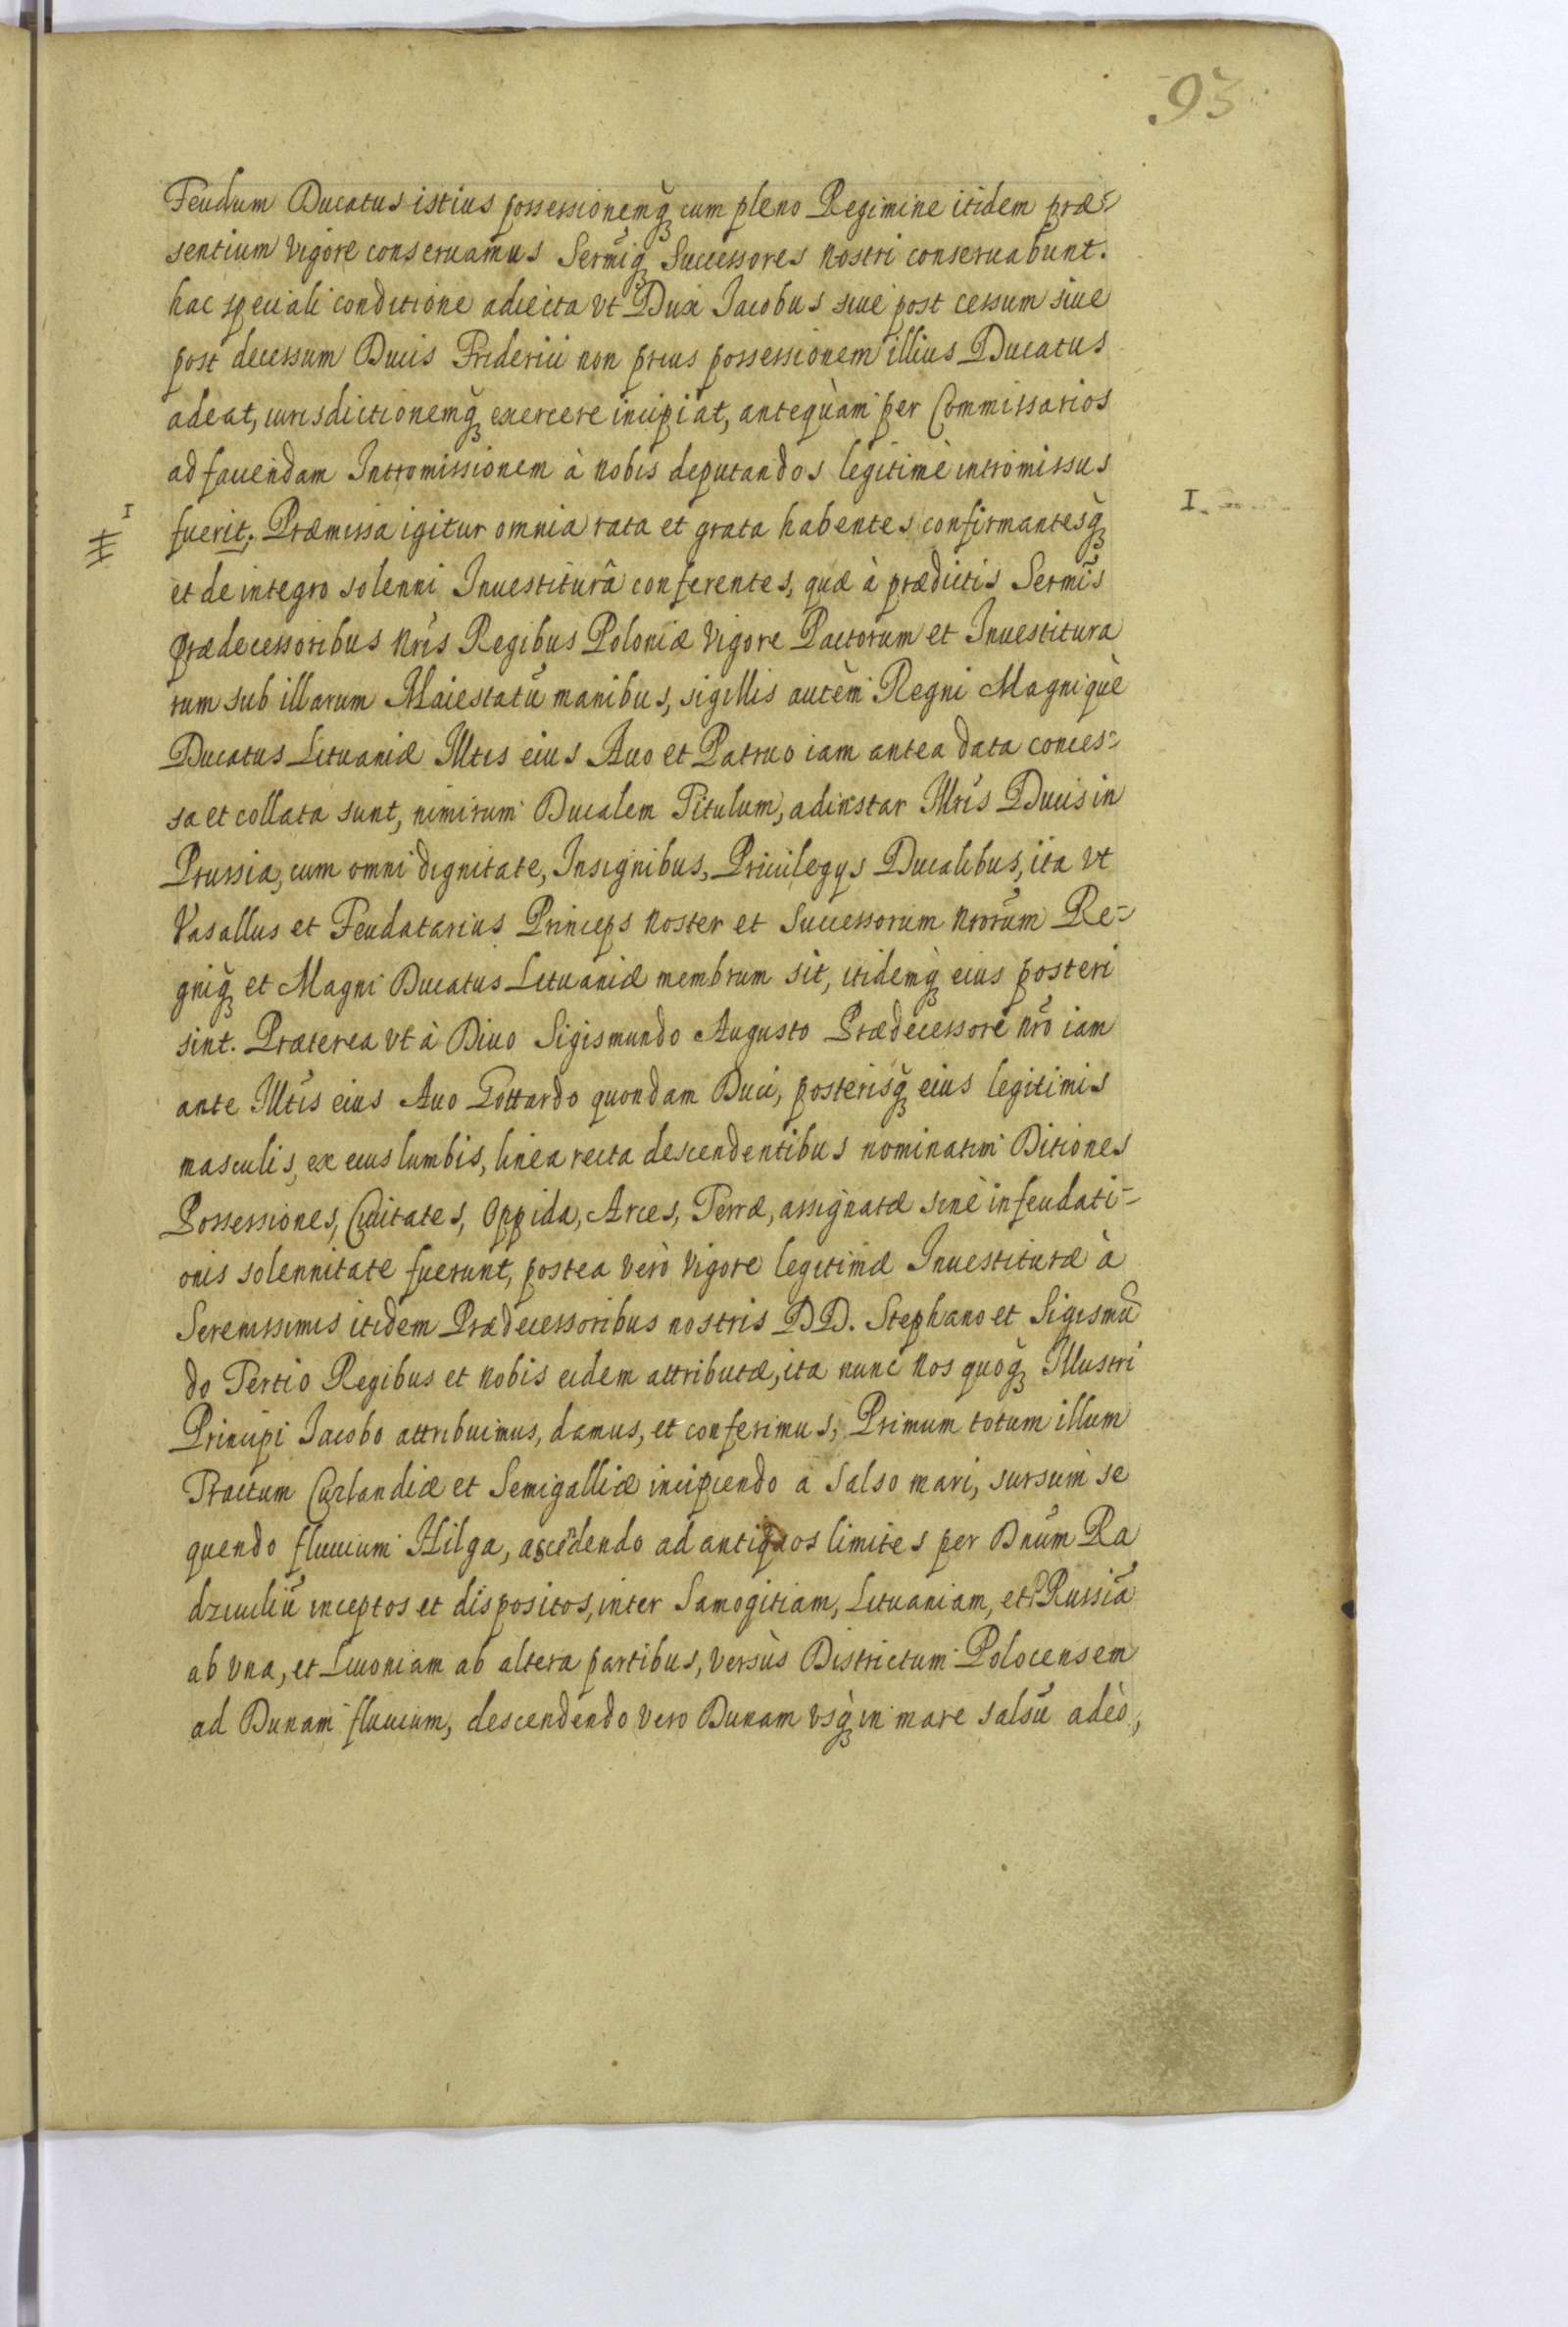 93
Feudum Ducatus istius possessionemq̃ cum pleno Regimine itidem præ=
sentium vigore conseruamus Sermiq̃ Successores nostri conseruabunt.
hac speciali conditione adiecta vt Dux Iacobus siue post cessum siue
post decessum Ducis Friderici non prius possessionem illius Ducatus
adeat, iurisdictionemq̃ exercere incipiat, antequàm per Commissarios
ad fauendam Intromissionem à nobis deputandos legitimè intromissus
I
fuerit. Præmissa igitur omnia rata et grata habentes confirmantesq̃
I.
et de integro solenni Inuestiturâ conferentes, quæ à prædictis Sermis̃
prædecessoribus nr̃is Regibus Poloniæ vigore Pactorum et Inuestitura
rum sub illarum Maiestatũ manibus, sigillis autèm Regni Magniquè
Ducatus Lituaniæ Illtis eius Auo et Patruo iam antea data conces=
sa et collata sunt, nimirum Ducalem Titulum, ad instar Illr̃is Ducis in
Prussia, cum omni dignitate, Insignibus, Priuilegys Ducalibus, ita vt
Vasallus et Feudatarius Princeps noster et Successorum nrorũm Re=
gniq̃ et Magni Ducatus Lituaniæ membrum sit, itidemq̃ eius posteri
sint. Præterea vt à Diuo Sigismundo Augusto Prædecessore nr̃o iam
ante Illtĩs eius Auo Gottardo quondam Duci, posterisq̃ eius legitimis
masculis, ex eius lumbis, linea recta descendentibus nominatim Ditiones
Possessiones, Ciuitates, Oppida, Arces, Terræ, assignatæ sinè infeudati=
onis solennitate fuerunt, postea verò vigore legitimæ Inuestituræ à
Serenissimis itidem Prædecessoribus nostris DD. Stephano et Sigismũ
do Tertio Regibus et nobis eidem attributæ, ita nunc nos quoq̃ Illustri
Principi Iacobo attribuimus, damus, et conferimus, Primum totum illum
Tractum Curlandiæ et Semigalliæ incipiendo a Salso mari, sursum se
quendo fluuium Hilga, ascẽdendo ad antiquos limites per Dnũm Ra
dziuiliũ inceptos et dispositos, inter Samogitiam, Lituaniam, et Russiã
ab vna, et Liuoniam ab altera partibus, versùs Districtum Polocensem
ad Dunam fluuium, descendendo vero Dunam vsq̃ in mare salsũ adèo,